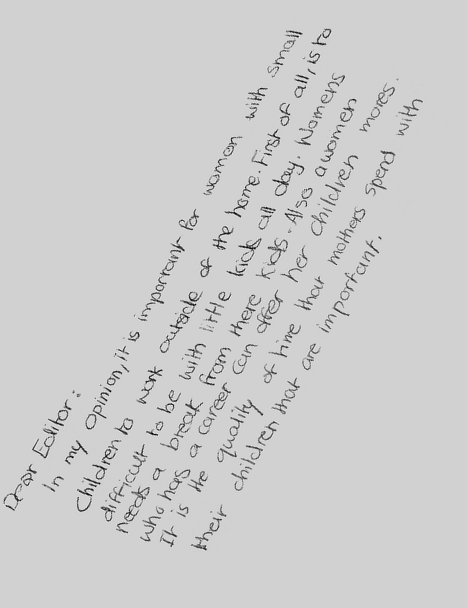 Dear Editor:
In my opinion, it is important for women with small
Children to work outside of the home. First of all, is to
difficult to be with little kids all day. Womens
needs a break from there kids. Also a women
who has a career can offer her children mores.
It is the quality of time that mothers spend with
their children that are important.